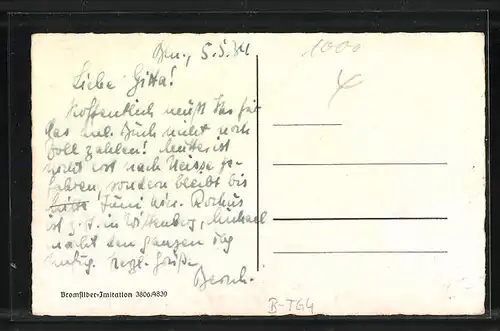 Bln., 5.5.34
1000
Liebe Gitta!
Hoffentlich mußt Du für
das anl. Buch nicht noch
Zoll zahlen! Mutter ist
nicht erst nach Neisse ge-
fahren, sondern bleibt bis
Mitte Juni hier. Rochus
ist z. Zt. in Wittenberg, Michael
macht den ganzen Tag
Unfug. Herzl. Grüße
Bernh.
Bromsilber-Imitation 3806/4839
B-TG4